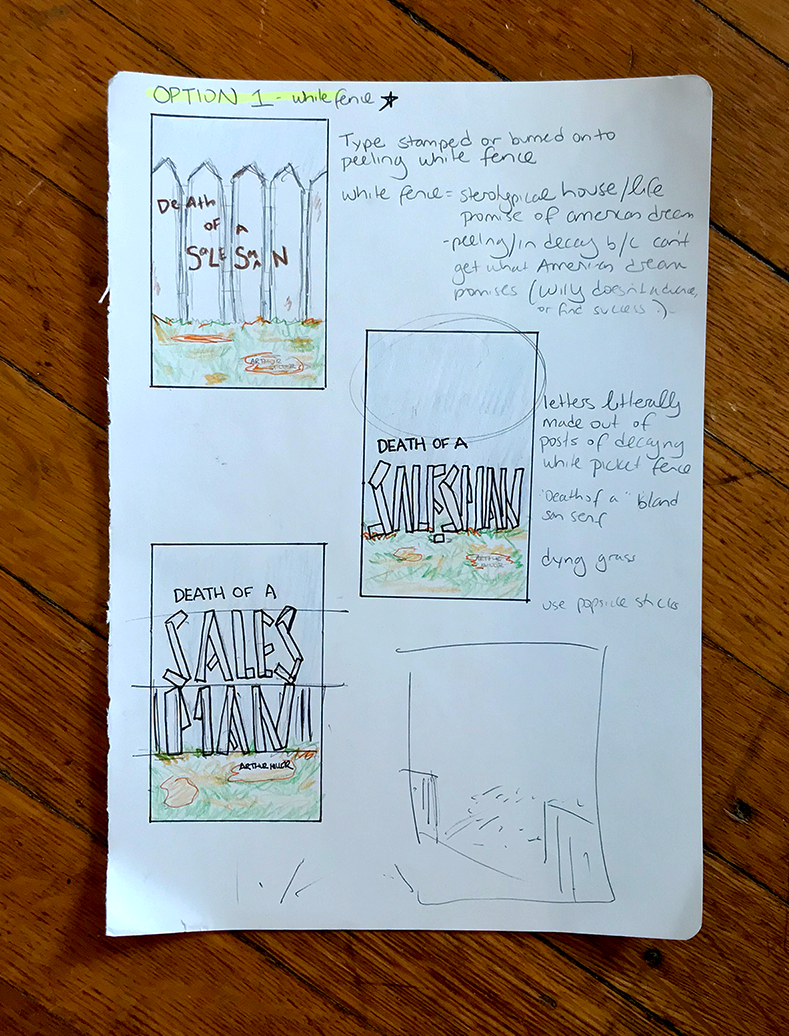 OPTION 1 - white fence ★
Type stamped or burned on to
peeling white fence
white fence = sterotypical house/life
promise of american dream
- peeling/in decay b/c can't
get what American dream
promises (Willy doesn't
or find success.)
DeAth
OF A
SaLE SmAN
ARTHUR
MILLER
letters litterally
made out of
posts of decaying
white picket fence
"Death of a" bland
san serif
dying grass
use popsicle sticks
DEATH OF A
SALESMAN
ARTHUR
MILLER
DEATH OF A
SALES
MAN
ARTHUR MILLER